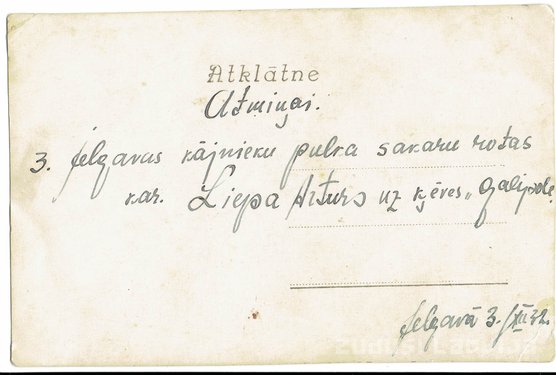 Atklātne
Atmiņai.
3. Jelgavas kājnieku pulka sakaru rotas
kar. Liepa Arturs uz ķēves „Galipode
Jelgavā 3./XII 32.